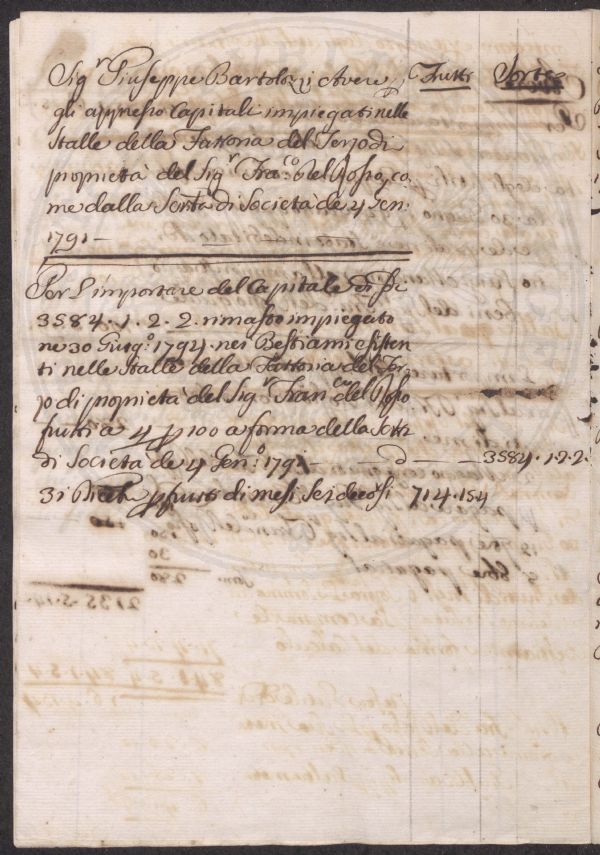 Sig.r Giuseppe Bartolozzi Avere p Frutti Sorte
gli appresso Capitali impiegati nelle
Stalle della Fattoria del Terzo di
proprietà del Sig.r Fra.co del Rosso, co-
me dalla Scrtta di Società de 4 Gen:
1791 —
Per L'importare del Capitale di
3584. 1. 2. 2. rimasto impiegato
ne 30 Giug.o 1794. nei Bestiami esisten
ti nelle Stalle della Fattoria del Ter
zo di proprietà del Sig.r Fran.co del Rosso
frutti a 4 p 100 a forma della Scrtt
di Società de 4 Gen.o 1791 — 3584. 1. 2. 2.
31 p frutti di mesi Sei decorsi 71.4.15.4